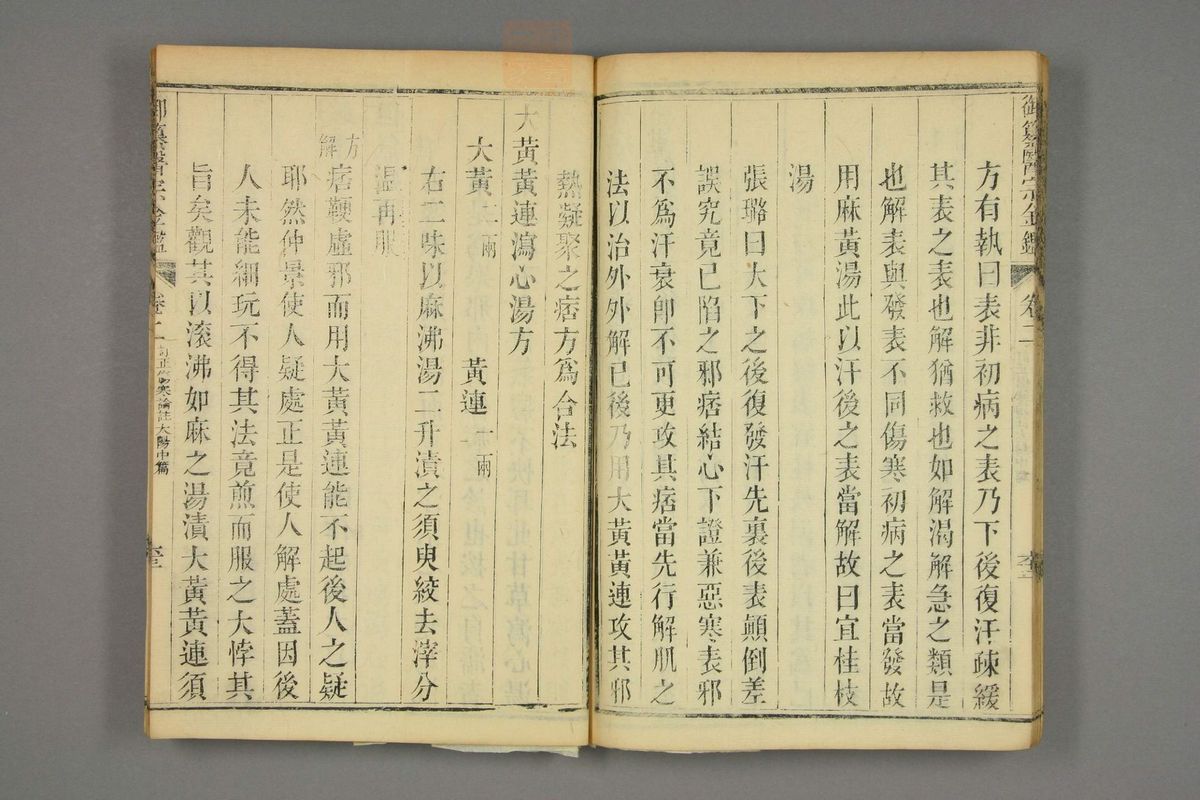 御纂醫宗金鑑 卷二
方有執曰表非初病之表乃下後復汗疎緩
其表之表也解猶救也如解渴解急之類是
也解表與發表不同傷寒初病之表當發故
用麻黃湯此以汗後之表當解故曰宜桂枝
湯
張璐曰大下之後復發汗先裏後表顚倒差
誤究竟已陷之邪痞結心下證兼惡寒表邪
不爲汗衰卽不可更攻其痞當先行解肌之
法以治外外解已後乃用大黃黃連攻其邪
熱凝聚之痞方爲合法
大黃黃連瀉心湯方
大黃二兩 黃連一兩
右二味以麻沸湯二升漬之須臾絞去滓分
溫再服
方解
痞鞕虛邪而用大黃黃連能不起後人之疑
耶然仲景使人疑處正是使人解處蓋因後
人未能細玩不得其法竟煎而服之大悖其
旨矣觀其以滾沸如麻之湯漬大黃黃連須
御纂醫宗金鑑 卷二 訂正傷寒論註太陽中篇